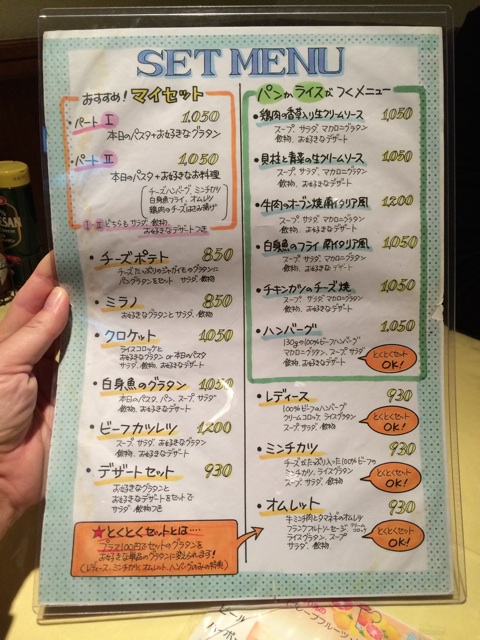 SET MENU
おすすめ! マイセット
・パート I 1,050
本日のパスタ+お好きなグラタン
・パート II 1,050
本日のパスタ+お好きなお料理
チーズハンバーグ、ミンチカツ
白身魚フライ、オムレツ
鶏肉のチーズはさみ揚げ
I・II どちらも サラダ、飲物
お好きなデザートつき
・チーズポテト 850
チーズたっぷりのジャガイモのグラタンに
パングラタンをセット サラダ、飲物
・ミラノ 850
お好きなグラタンと サラダ、飲物
・クロケット 1,050
ライスコロッケと
お好きなグラタン or 本日のパスタ
サラダ、飲物、お好きなデザート
・白身魚のグラタン 1,050
本日のパスタ、パン、スープ、サラダ
飲物、お好きなデザート
・ビーフカツレツ 1,200
スープ、サラダ、お好きなグラタン
サラダ、飲物
・デザートセット 930
お好きなグラタンと
お好きなデザートをセットで
サラダ、飲物つき
★とくとくセットとは‥‥
プラス100円でセットのグラタンを
お好きな単品のグラタンに変えられます!
(レディース、ミンチカツ、オムレット、ハンバーグのみの特典)
パンかライスがつくメニュー
・鶏肉の香草入り生クリームソース 1,050
スープ、サラダ、マカロニグラタン
飲物、お好きなデザート
・貝柱と青菜の生クリームソース 1,050
スープ、サラダ、マカロニグラタン
飲物、お好きなデザート
・牛肉のオーブン焼南イタリア風 1,200
スープ、サラダ、マカロニグラタン
飲物、お好きなデザート
・白身魚のフライ南イタリア風 1,050
スープ、サラダ、マカロニグラタン
飲物、お好きなデザート
・チキンカツのチーズ焼 1,050
スープ、サラダ、マカロニグラタン
飲物、お好きなデザート
・ハンバーグ 1,050
130gの100%ビーフハンバーグ
マカロニグラタン、スープ、サラダ
飲物、お好きなデザート
とくとくセット
OK!
・レディース 930
100%ビーフのハンバーグ
クリームコロッケ、ライスグラタン
スープ、サラダ、飲物
とくとくセット
OK!
・ミンチカツ 930
チーズがたっぷり入った100%ビーフの
ミンチカツ、ライスグラタン
スープ、サラダ、飲物
とくとくセット
OK!
・オムレット 930
牛ミンチ肉とタマネギのオムレツ
フランクフルトソーセージ、クリームコロッケ
ライスグラタン、スープ
サラダ、飲物
とくとくセット
OK!
ビール